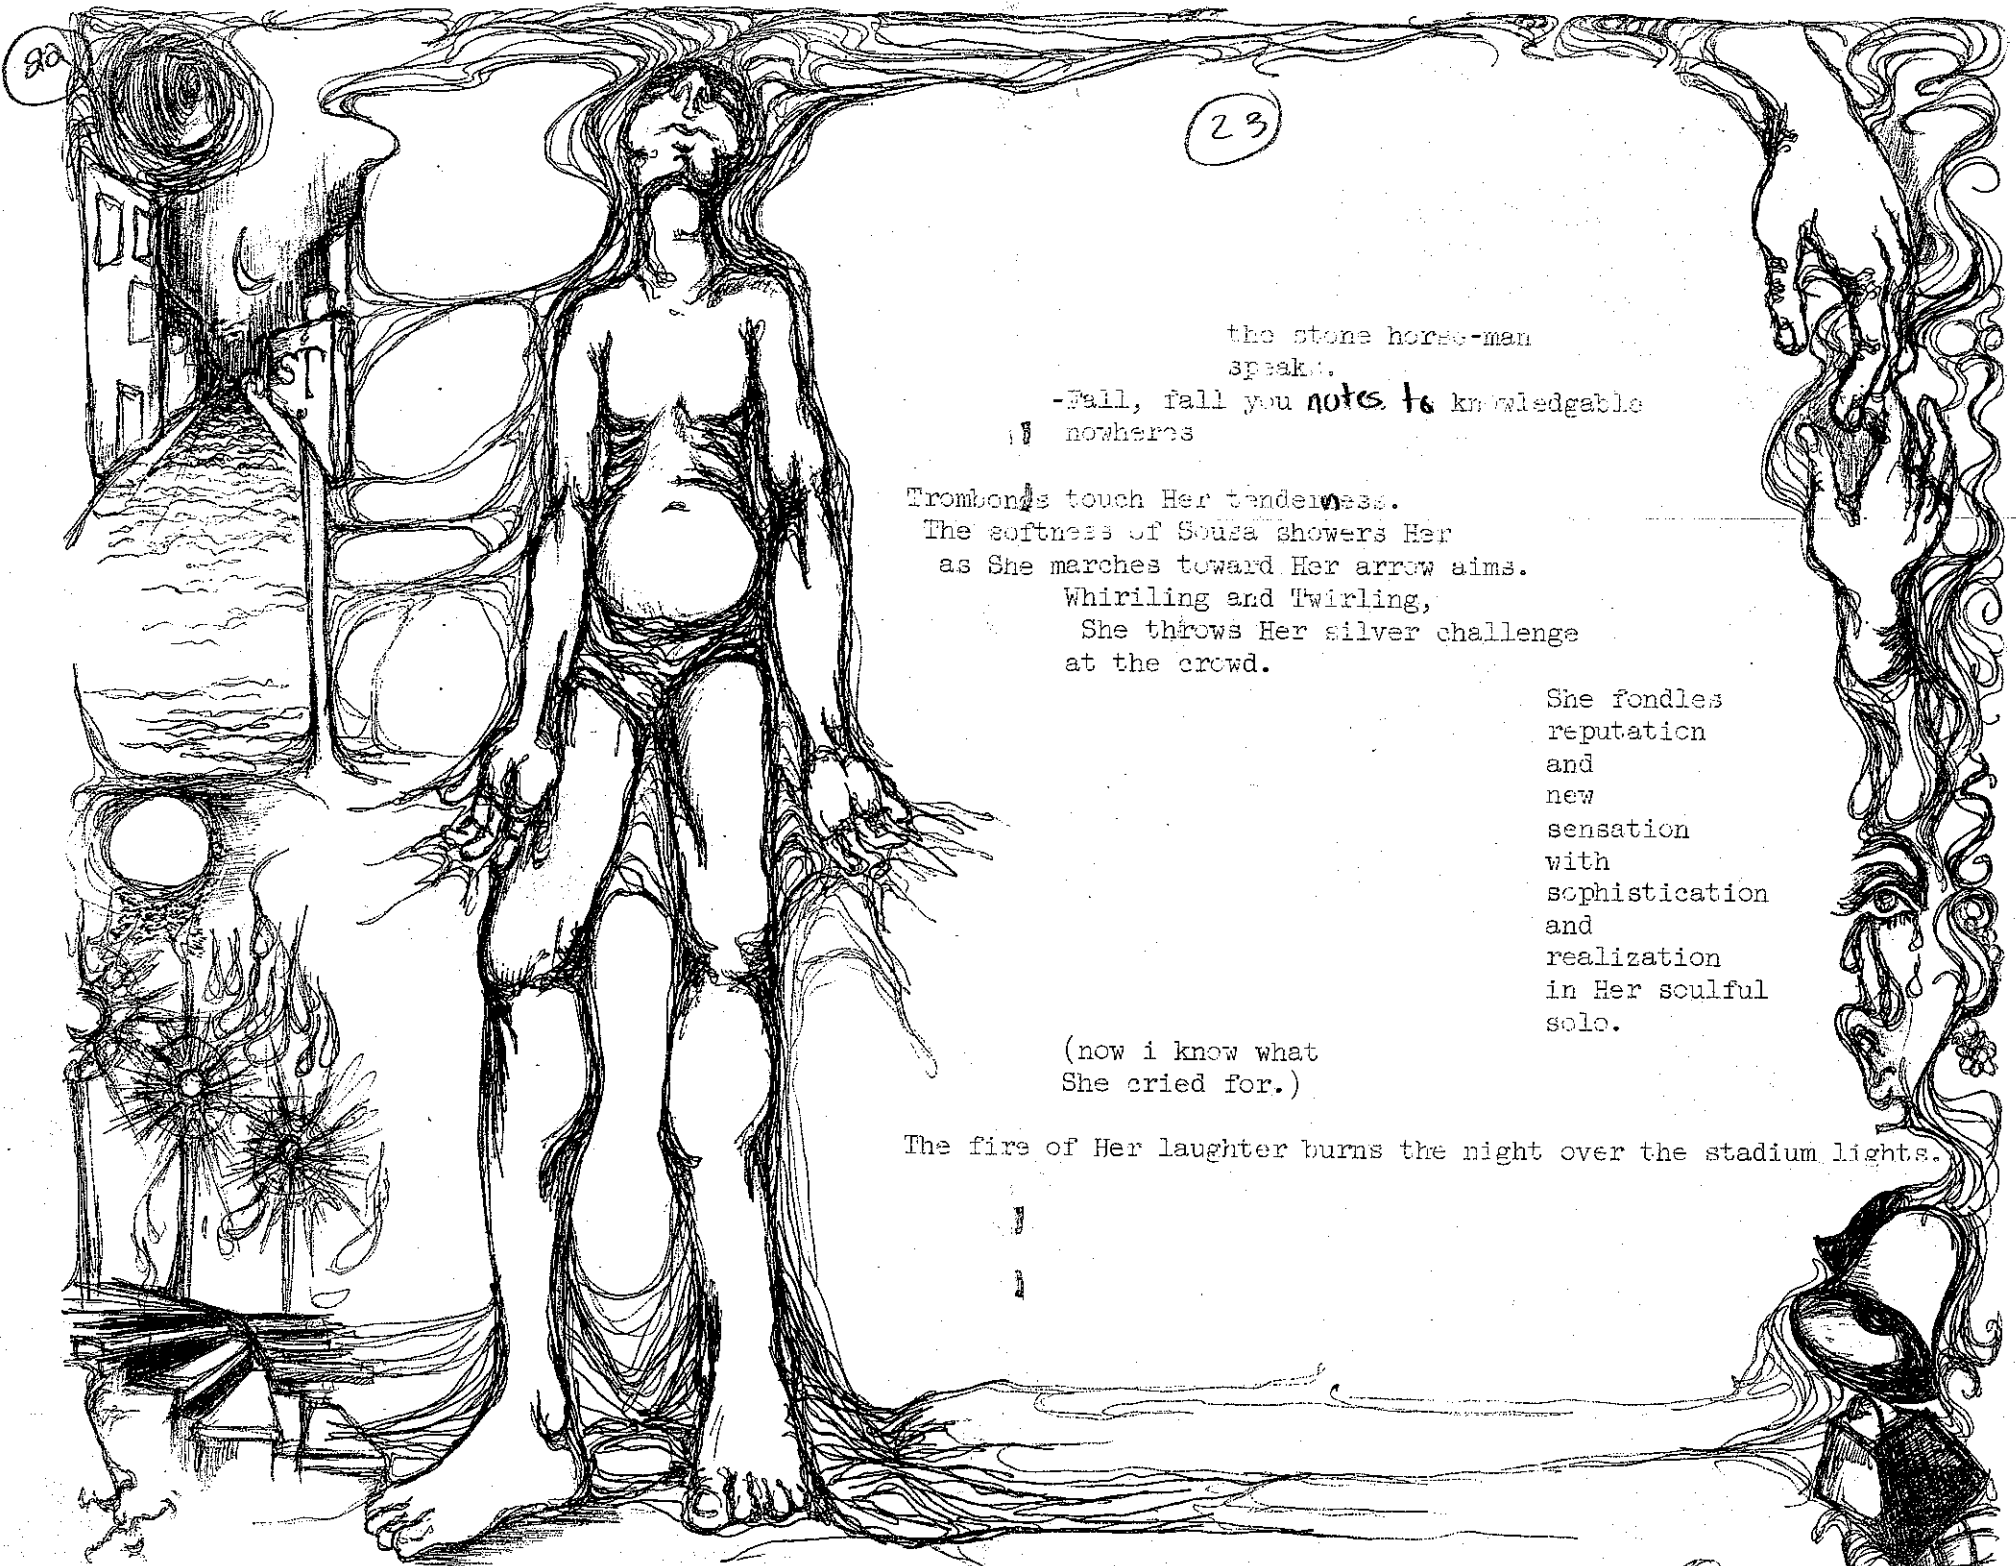 22
23
ST
the stone horse-man
speaks.
-Fall, fall you notes to knowledgable
nowheres
Trombones touch Her tenderness.
The softness of Sousa showers Her
as She marches toward Her arrow aims.
Whiriling and Twirling,
She throws Her silver challenge
at the crowd.
She fondles
reputation
and
new
sensation
with
sophistication
and
realization
in Her soulful
solo.
(now i know what
She cried for.)
The fire of Her laughter burns the night over the stadium lights.